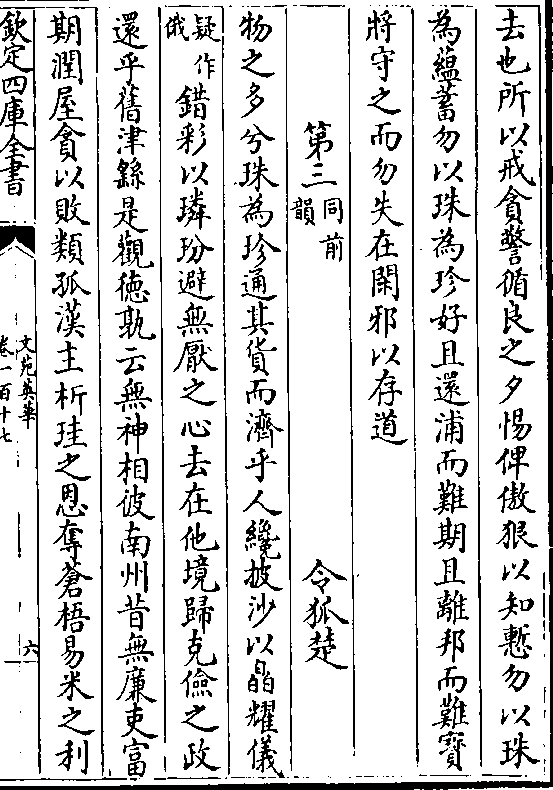 去也所以戒貪警循良之夕惕俾傲狠以知慙勿以珠
為蘊蓄勿以珠為珍好且還浦而難期且離邦而難寶
將守之而勿失在閑邪以存道
第三同前韻 令狐楚
物之多兮珠為珍通其貨而濟乎人纔披沙以晶耀儀
疑作俄錯彩以璘玢避無厭之心去在他境歸克儉之政
還乎舊津繇是觀徳孰云無神相彼南州昔無廉吏富
期潤屋貪以敗類孤漢主析珪之恩奪蒼梧易米之利
欽定四庫全書
文苑英華
卷一百十七
六